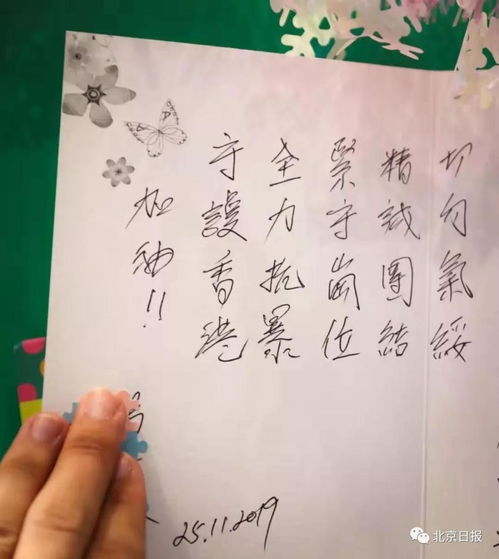 切勿氣綏
精誠團結
緊守崗位
全力抗暴
守護香港
加油!!
25.11.2019
北京日报